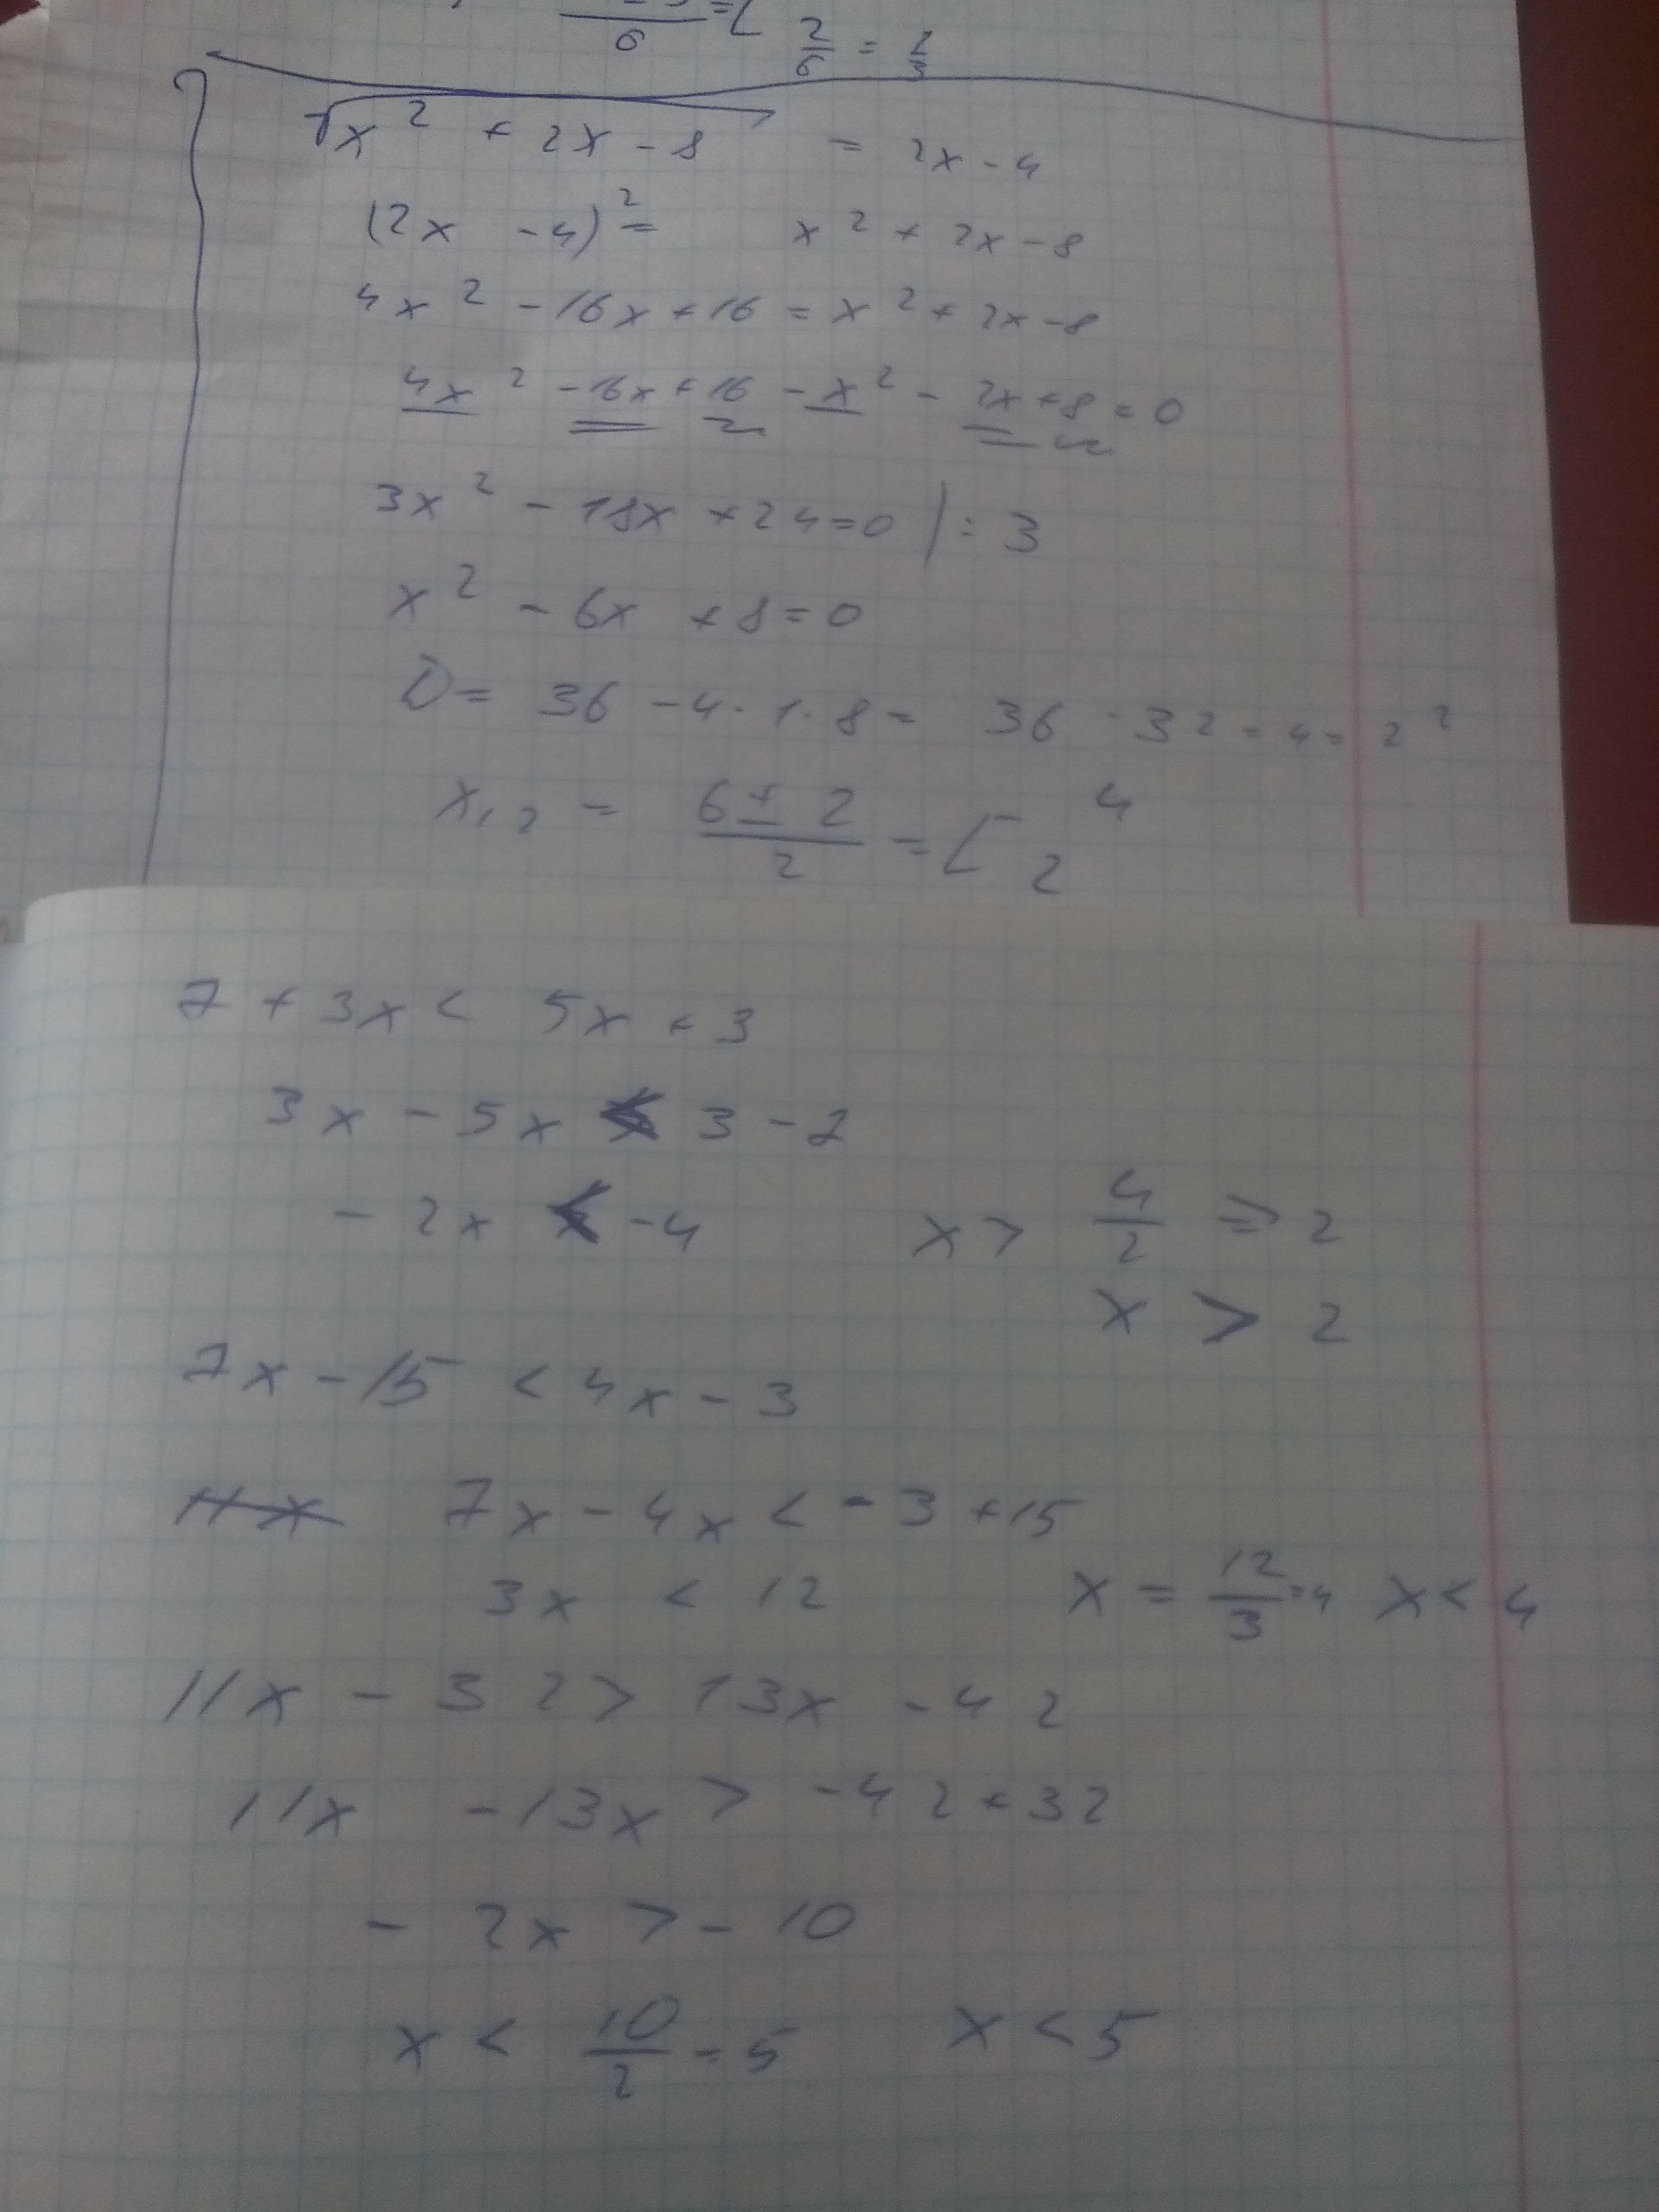 6 = [ 2/6 = 1/3
√x² + 2x - 8 = 2x - 4
(2x - 4)² = x² + 2x - 8
4x² - 16x + 16 = x² + 2x - 8
4x² - 16x + 16 - x² - 2x + 8 = 0
3x² - 18x + 24 = 0 | : 3
x² - 6x + 8 = 0
D = 36 - 4 · 1 · 8 = 36 - 32 = 4 = 2²
x₁,₂ = (6 ± 2)/2 = [ 4 2
7 + 3x < 5x + 3
3x - 5x < 3 - 7
- 2x < -4 x > 4/2 => 2
x > 2
7x - 15 < 4x - 3
11x 7x - 4x < - 3 + 15
3x < 12 x = 12/3 = 4 x < 4
11x - 32 > 13x - 42
11x - 13x > -42 + 32
- 2x > - 10
x < 10/2 = 5 x < 5